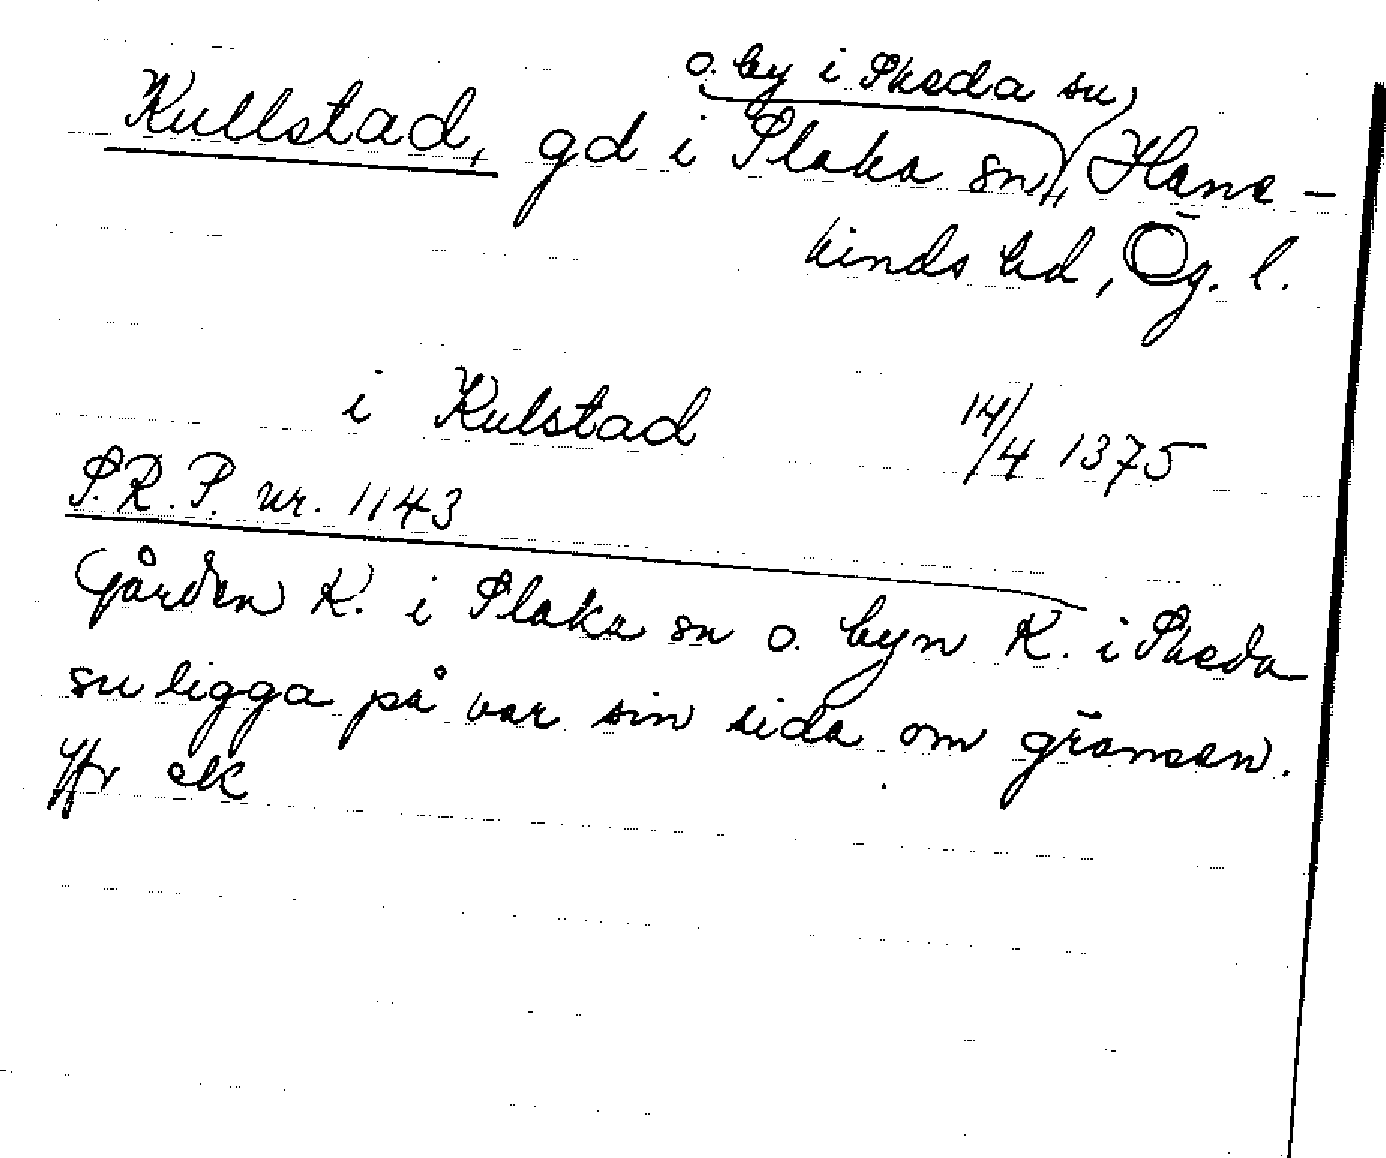 o. by i Skeda sn,
Kullstad, gd i Slaka sn, Hane-
kinds hd, Ög. l.
i Kulstad 14/4 1375
S.R.P. nr. 1143
Gården K. i Slaka sn o. byn K. i Skeda
sn ligga på var sin sida om gränsen.
Jfr ek